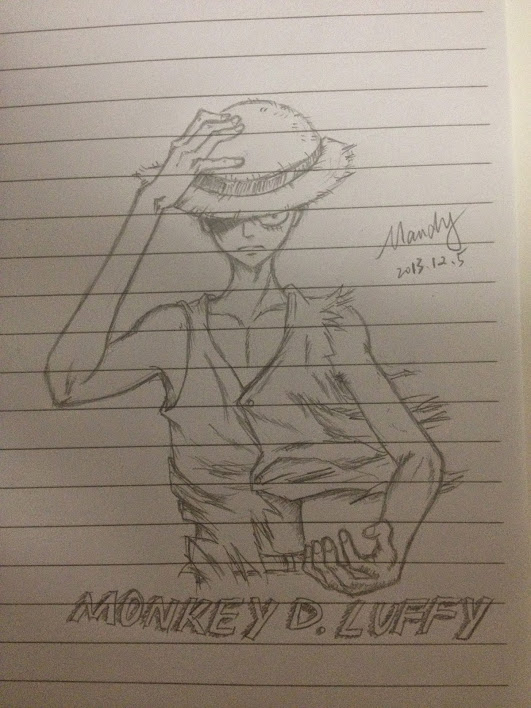 Mandy
2013.12.5
MONKEY D. LUFFY